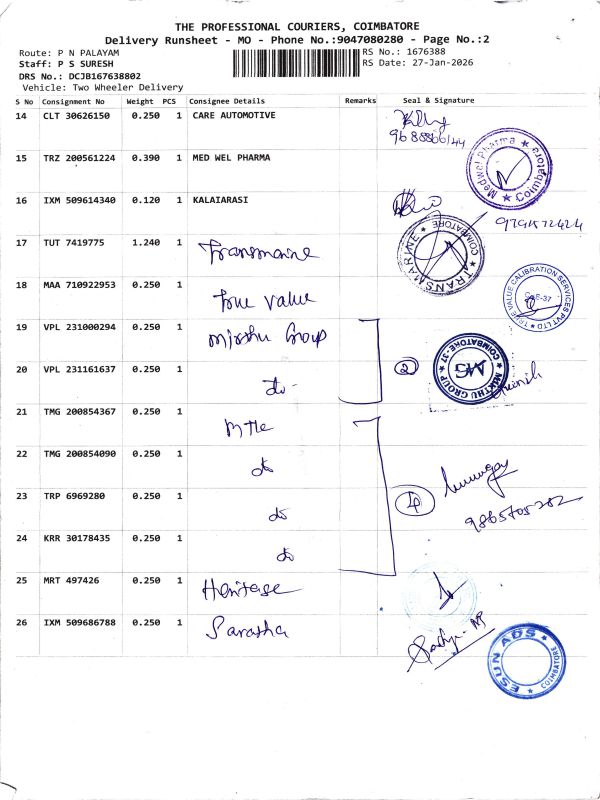 THE PROFESSIONAL COURIERS, COIMBATORE
Delivery Runsheet - MO - Phone No.:9047080280 - Page No.:2
Route: P N PALAYAM
RS No.: 1676388
Staff: P S SURESH
RS Date: 27-Jan-2026
DRS No.: DCJB167638802
Vehicle: Two Wheeler Delivery
S No Consignment No Weight PCS Consignee Details Remarks Seal & Signature
14 CLT 30626150 0.250 1 CARE AUTOMOTIVE
15 TRZ 200561224 0.390 1 MED WEL PHARMA
Medwel Pharma ★ Coimbatore ★
16 IXM 509614340 0.120 1 KALAIARASI
17 TUT 7419775 1.240 1 Transmarine
★ TRANSMARINE ★ COIMBATORE
18 MAA 710922953 0.250 1 True Value
TRUE VALUE CALIBRATION SERVICES PVT LTD ★
CBE-37
19 VPL 231000294 0.250 1 Mirthu Group
20 VPL 231161637 0.250 1 do
2
MIRTHU GROUP ★ COIMBATORE-37 ★
MG
21 TMG 200854367 0.250 1
22 TMG 200854090 0.250 1 do
23 TRP 6969280 0.250 1 do
4
24 KRR 30178435 0.250 1 do
25 MRT 497426 0.250 1 Heritage
26 IXM 509686788 0.250 1
ESUN ADS ★ COIMBATORE ★